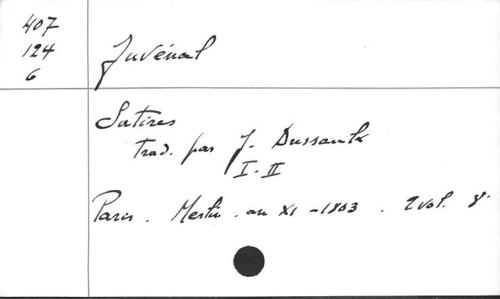 407
124
6
Juvénal
Satires
Trad. par J. Dussaulx
I-II
Paris. Merlin. an XI - 1803. 2 vol. 8°